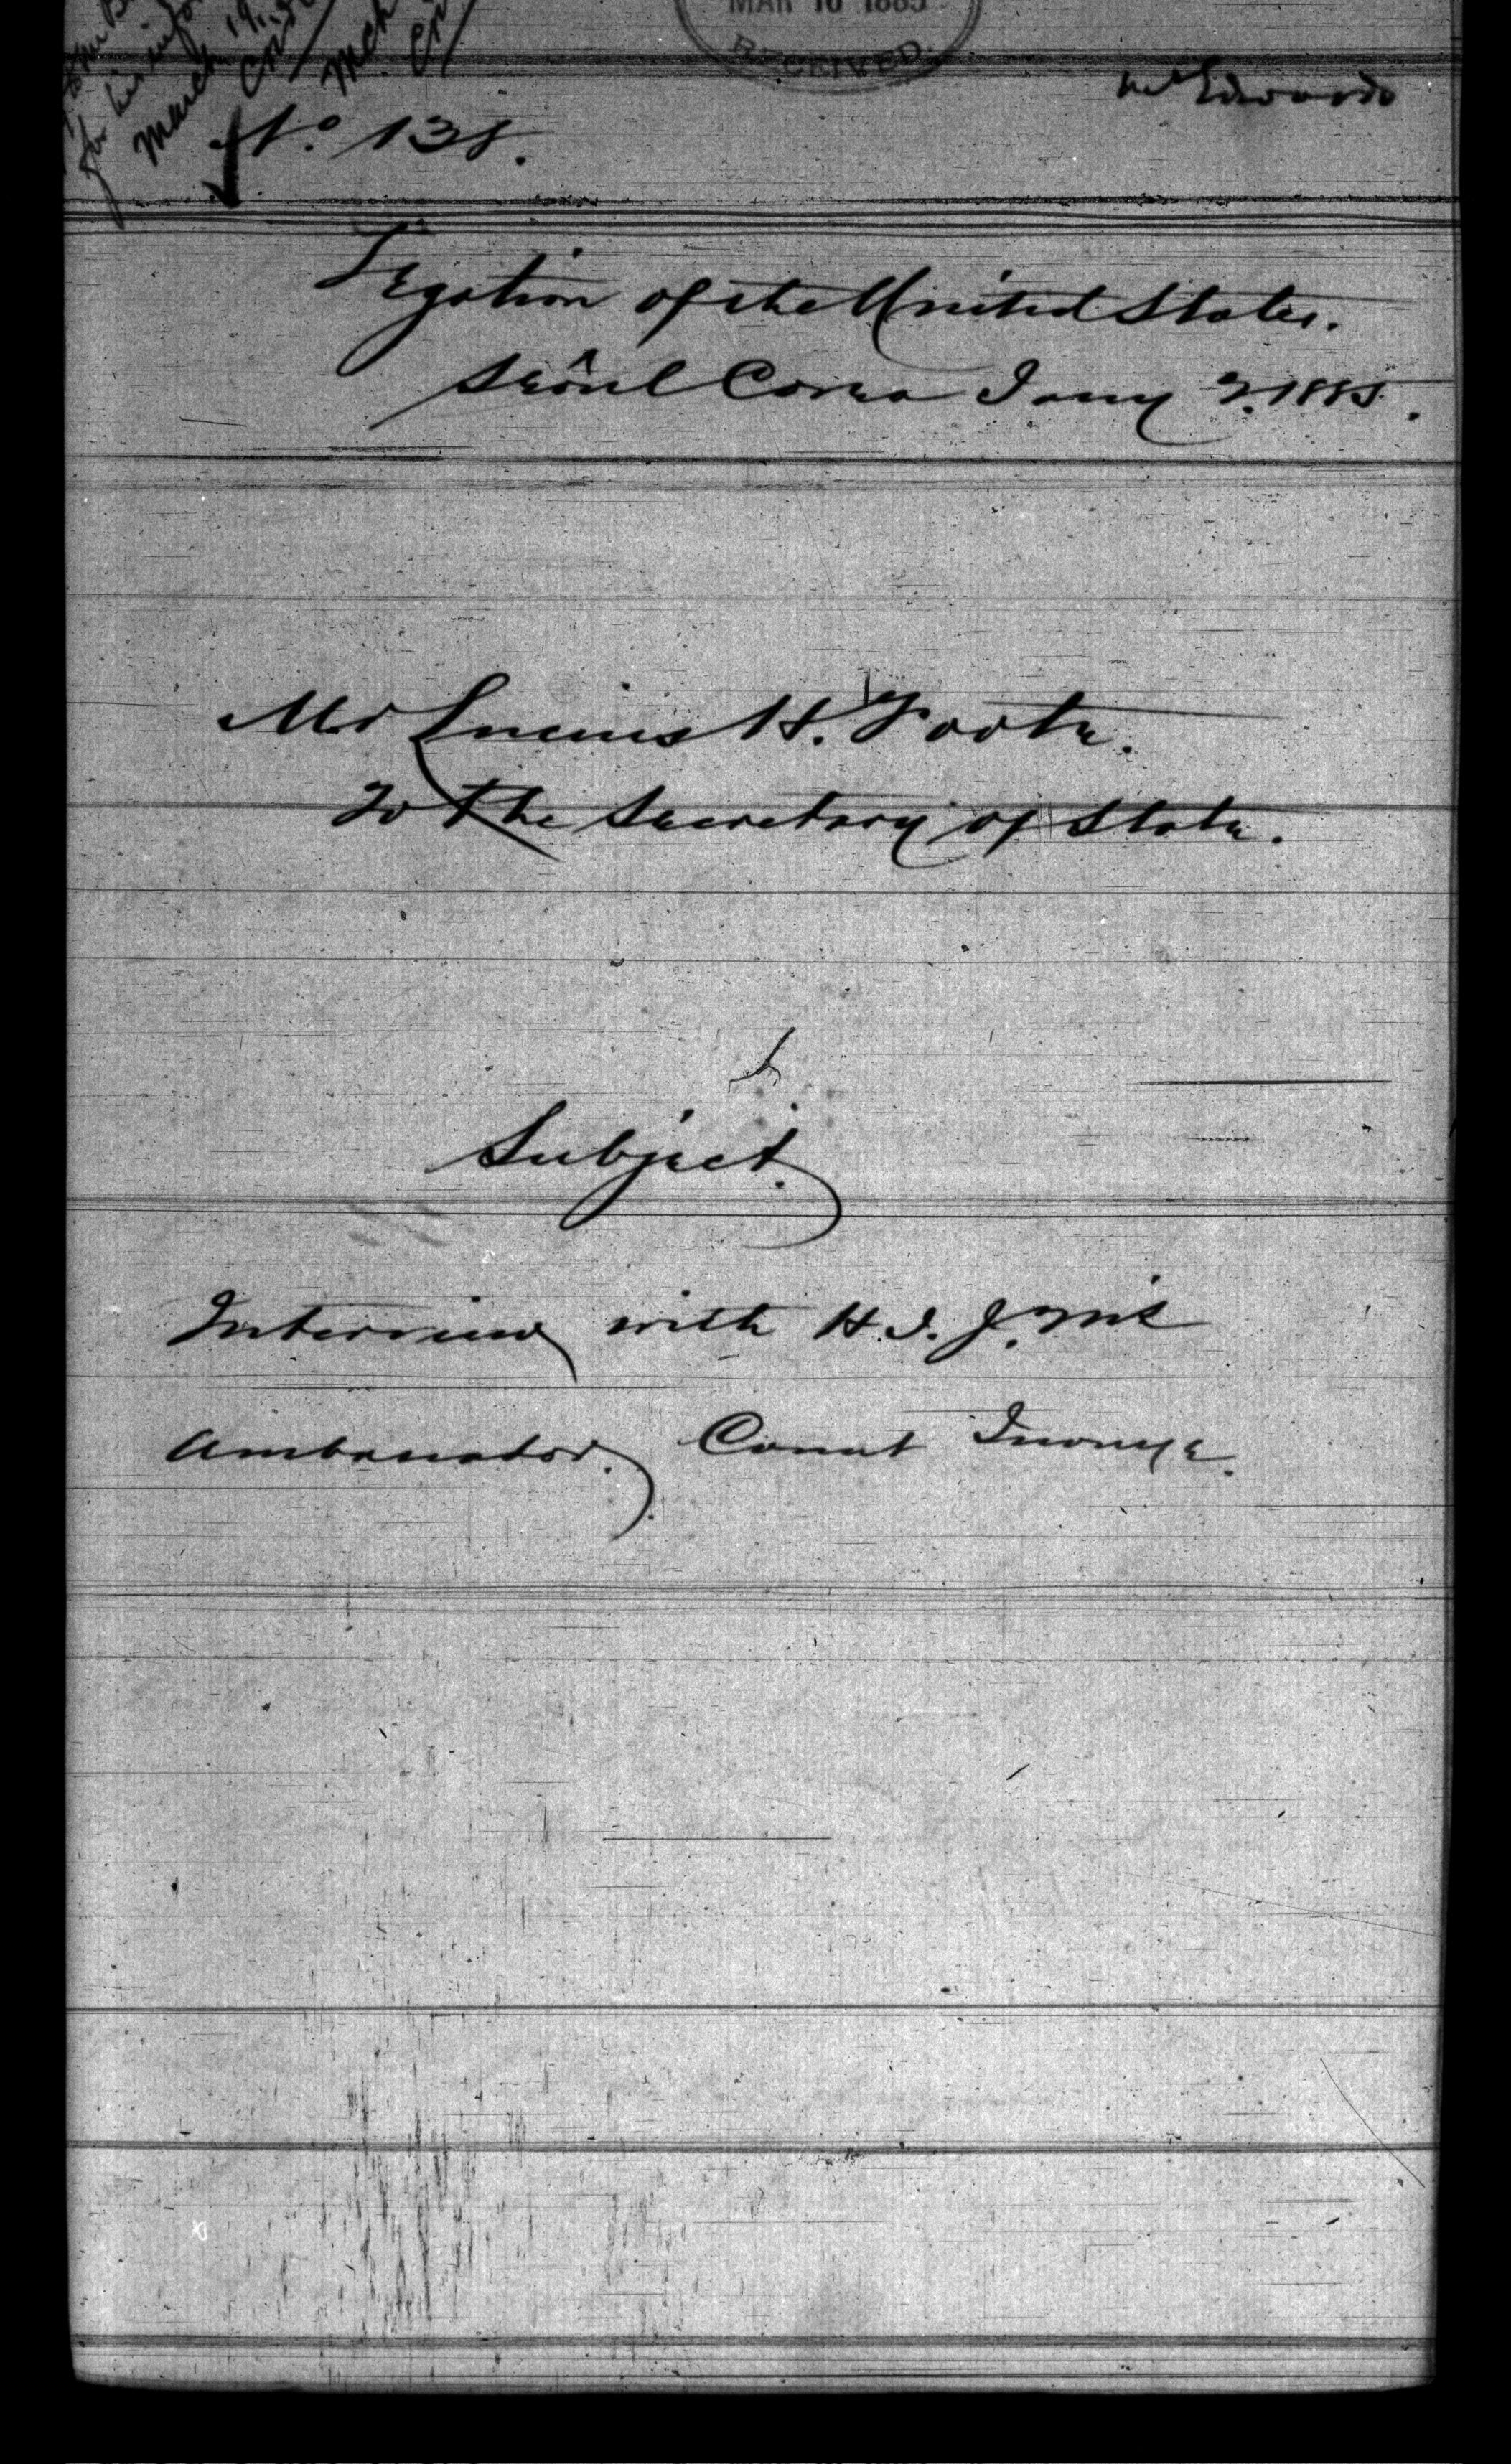 for his
March 19,
MAR 16 1885
RECEIVED.
Mr Edwards
No. 138.
Legation of the United States.
Seôul Corea Jany 2, 1885.
Mr Lucius H. Foote.
To the Secretary of State.
Subject.
Interview with H.I.J.M's
Ambassador, Count Inouye.